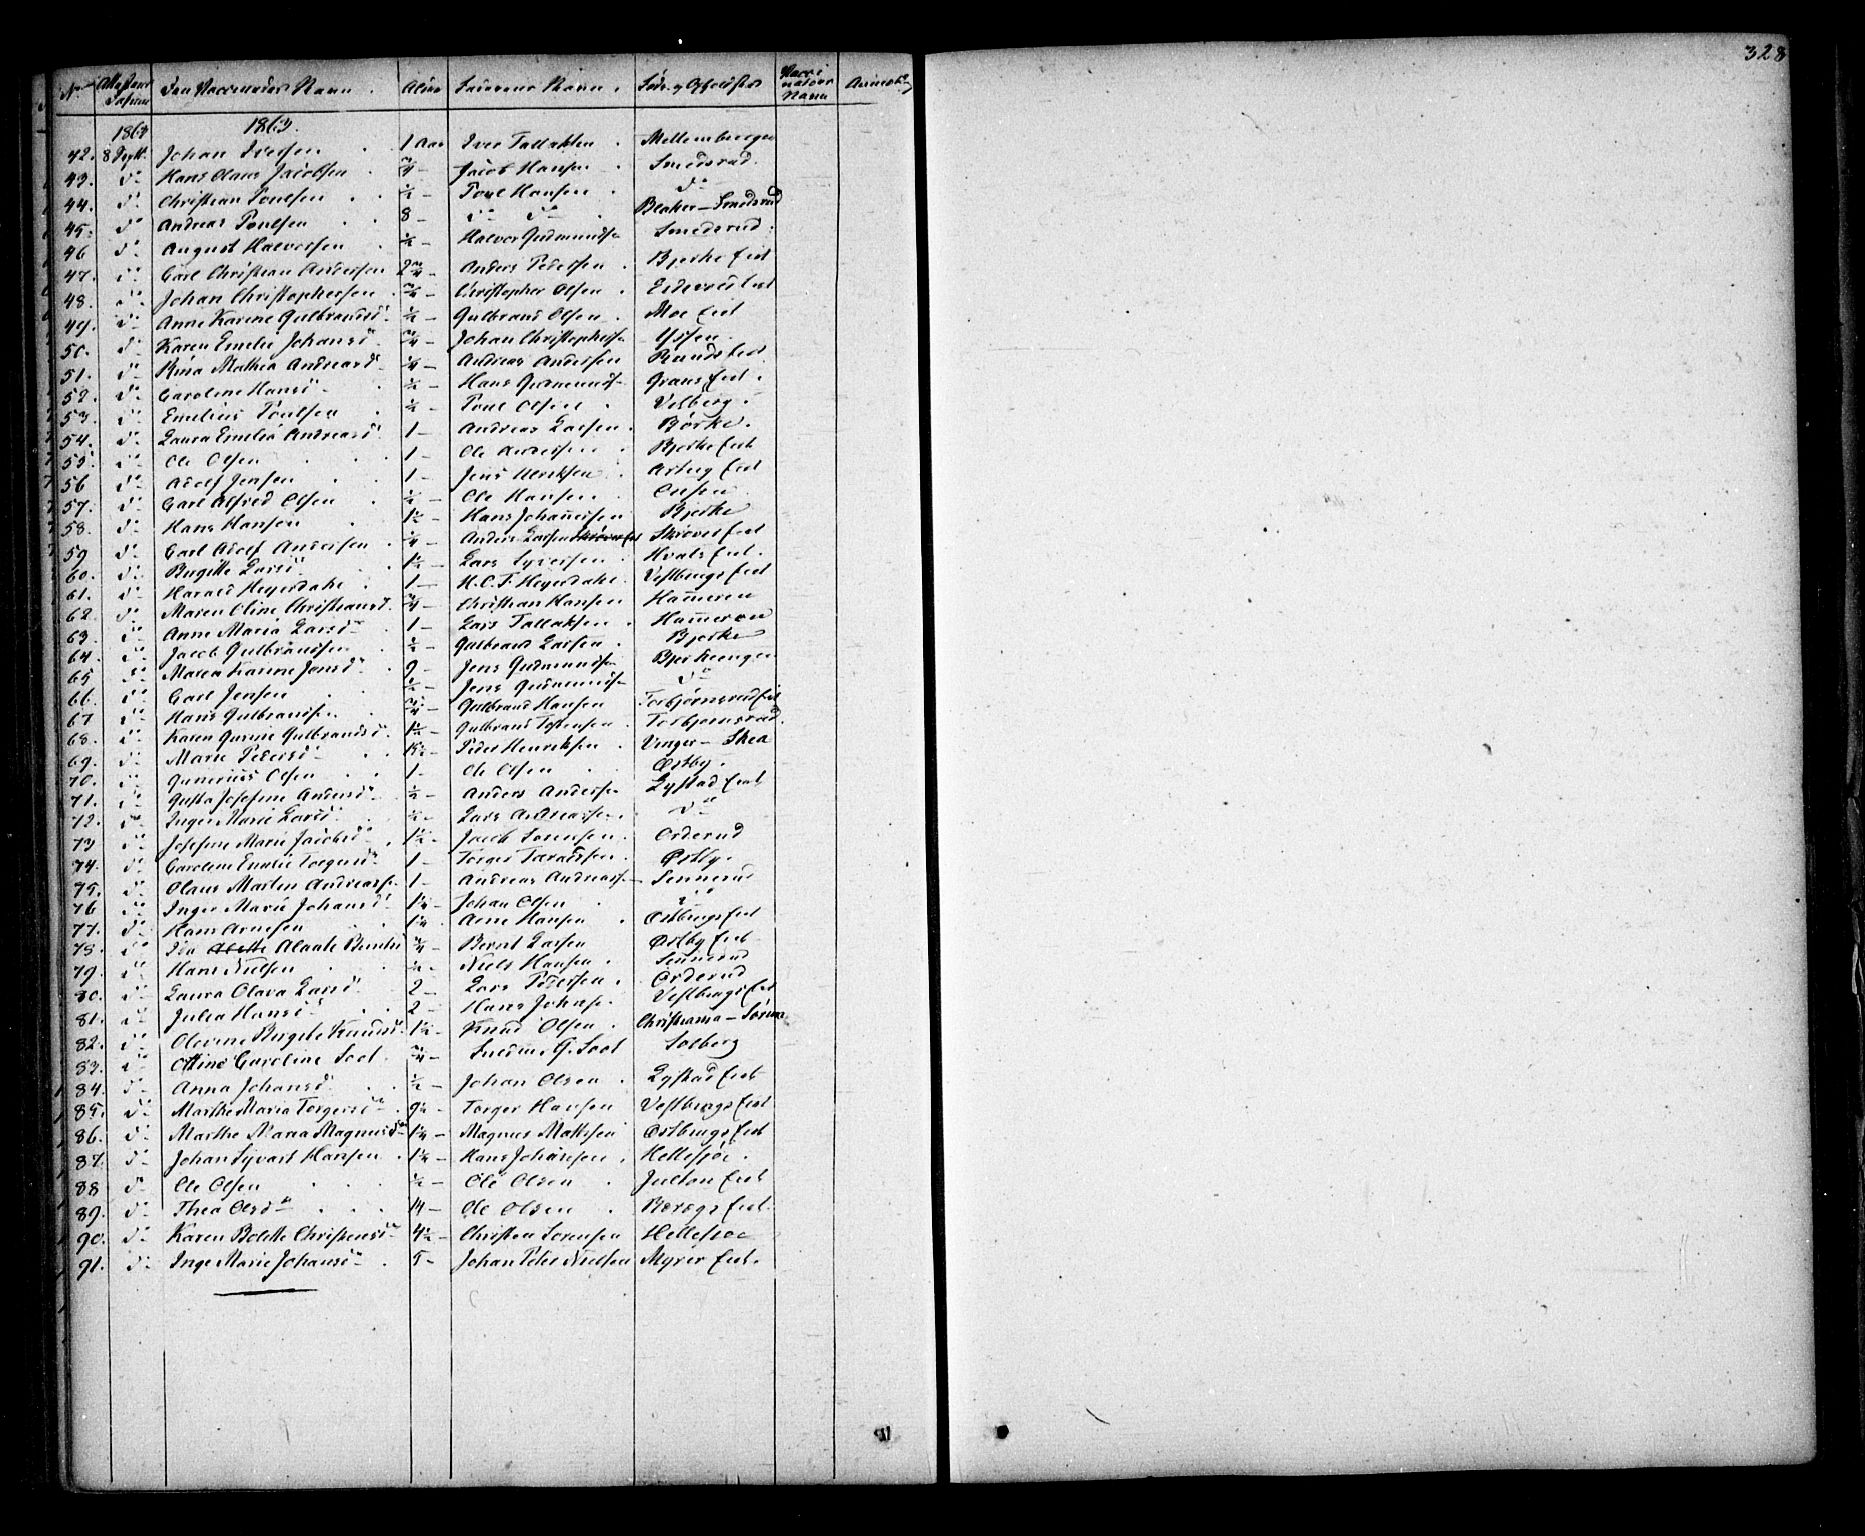 328
No Attestens Datum Den Vaccineredes Navn. Alder Faderens Navn. Føde- og Opholdsted Vaccinateurs Navn Anmærkn.
1863 1863.
42. 8 Septr. Johan Iversen 1 Aar Iver Tallaksen Mellembergen
43. do Hans Olaus Jacobsen ¾ - Jacob Hansen Smedsrud
44. do Christian Poulsen ½ - Poul Hansen do
45. do Andreas Poulsen 8 - do do Blaker - Smedsrud
46 do August Halvorsen ½ - Halvor Gudmundsn Smedsrud
47. do Carl Christian Andersen 2¾ - Anders Pedersen Bjerke Eiet
48. do Johan Christophersen ¾ - Christopher Olsen
49. do Anne Karine Gulbrandsd ½ - Gulbrand Olsen Moe Eiet
50. do Karen Emelie Johansd ¾ - Johan Christophersen
51. do Mathea Andreasd ¼ - Andreas Andersen Runds Eiet
52. do Caroline Hansd ½ - Hans Gudmunds Grans Eiet
53. do Emelius Poulsen ½ - Poul Olsen
54. do Laura Emelia Andreasd 1 - Andreas Larsen Børke
55. do Ole Olsen 1 - Ole Andersen Bjerke Eiet
56 do Adolf Jensen 1 - Jens Ulriksen Eiet
57. do Carl Alfred Olsen ½ - Ole Hansen
58. do Hans Hansen 1½ - Hans Johannesen Bjerke
59 do Carl Adolf Andersen ¼ - Anders Larsen Skrøver Eiet
60. do Birgitte Larsd 1½ - Lars Syversen Hvals Eiet
61. do Harald Heyerdahl 1 - H. C. F. Heyerdahl Vestbyegs Eiet
62 do Maren Oline Christiansd ¾ - Christian Hansen Hammeren
63. do Anne Maria Larsd 1 - Lars Tallaksen Hammeren
64. do Jacob Gulbrandsen ½ - Gulbrand Larsen Bjerke
65 do Maren Karine Jensd 9 - Jens Gudmundsen Bjerkeengen
66. do Carl Jensen ½ - Jens Gudmunds do
67 do Hans Gulbrandsen ¾ - Gulbrand Hansen Torbjørnsrud Eiet
68. do Karen Gurine Gulbrandsd 1½ - Gulbrand Torstensen Torbjørnsrud
69. do Marie Pedersd Peder Henriksen Vinger - Skea
70. do Gunerius Olsen 1 - Ole Olsen Østby
71. do Gusta Josefine Andersd ½ - Anders Andersen Lystad Eiet
72. do Inger Marie Larsd ½ - Lars Andreassen do
73 do Josefine Marie Jacobsd 1½ - Jacob Sørensen Orderud
74. do Caroline Emelie Torgersd 1 - Torger Taraldsen Østby
75. do Olaus Martin Andreassn 1 - Andreas Andreass Sennerud
76 do Inger Marie Johansd 1¼ - Johan Olsen do
77. do Hans Arnesen 1¼ - Arne Hansen Østbyegs Eiet
78. do Ida Alaale Berntsd ¾ - Bernt Larsen Østby Eiet
79. do Hans Nielsen ½ - Niels Hansen Sennerud
80. do Laura Olava Larsd 2 - Lars Pedersen Orderud
81. do Julia Hansd 2 - Hans Johnsn Vestbyegs Eiet
82. do Olevine Birgitte Knudsd 1½ - Knud Olsen Christiania - Sørum
83. do Ottine Caroline Soot ¾ - G. Soot Solberg
84. do Anna Johansd ½ - Johan Olsen Lystad Eiet
85. do Marthe Maria Torgersd 9½ - Torger Hansen Vestbyegs Eiet
86. do Marthe Maria Magnusd 1¼ - Magnus Mathisen Østbyegs Eiet
87. do Johan Syvart Hansen 1¼ - Hans Johansen Hellesjøe
88 do Ole Olsen ½ - Ole Olsen Julton Eiet
89. do Thea Olsd 14 - Ole Olsen Eiet
90. do Karen Bolette Christensd 4½ - Christen Sørensen Hellesjøe
91. do Inge Marie Johansd 5 - Johan Peter Nielsen Myrer Eiet